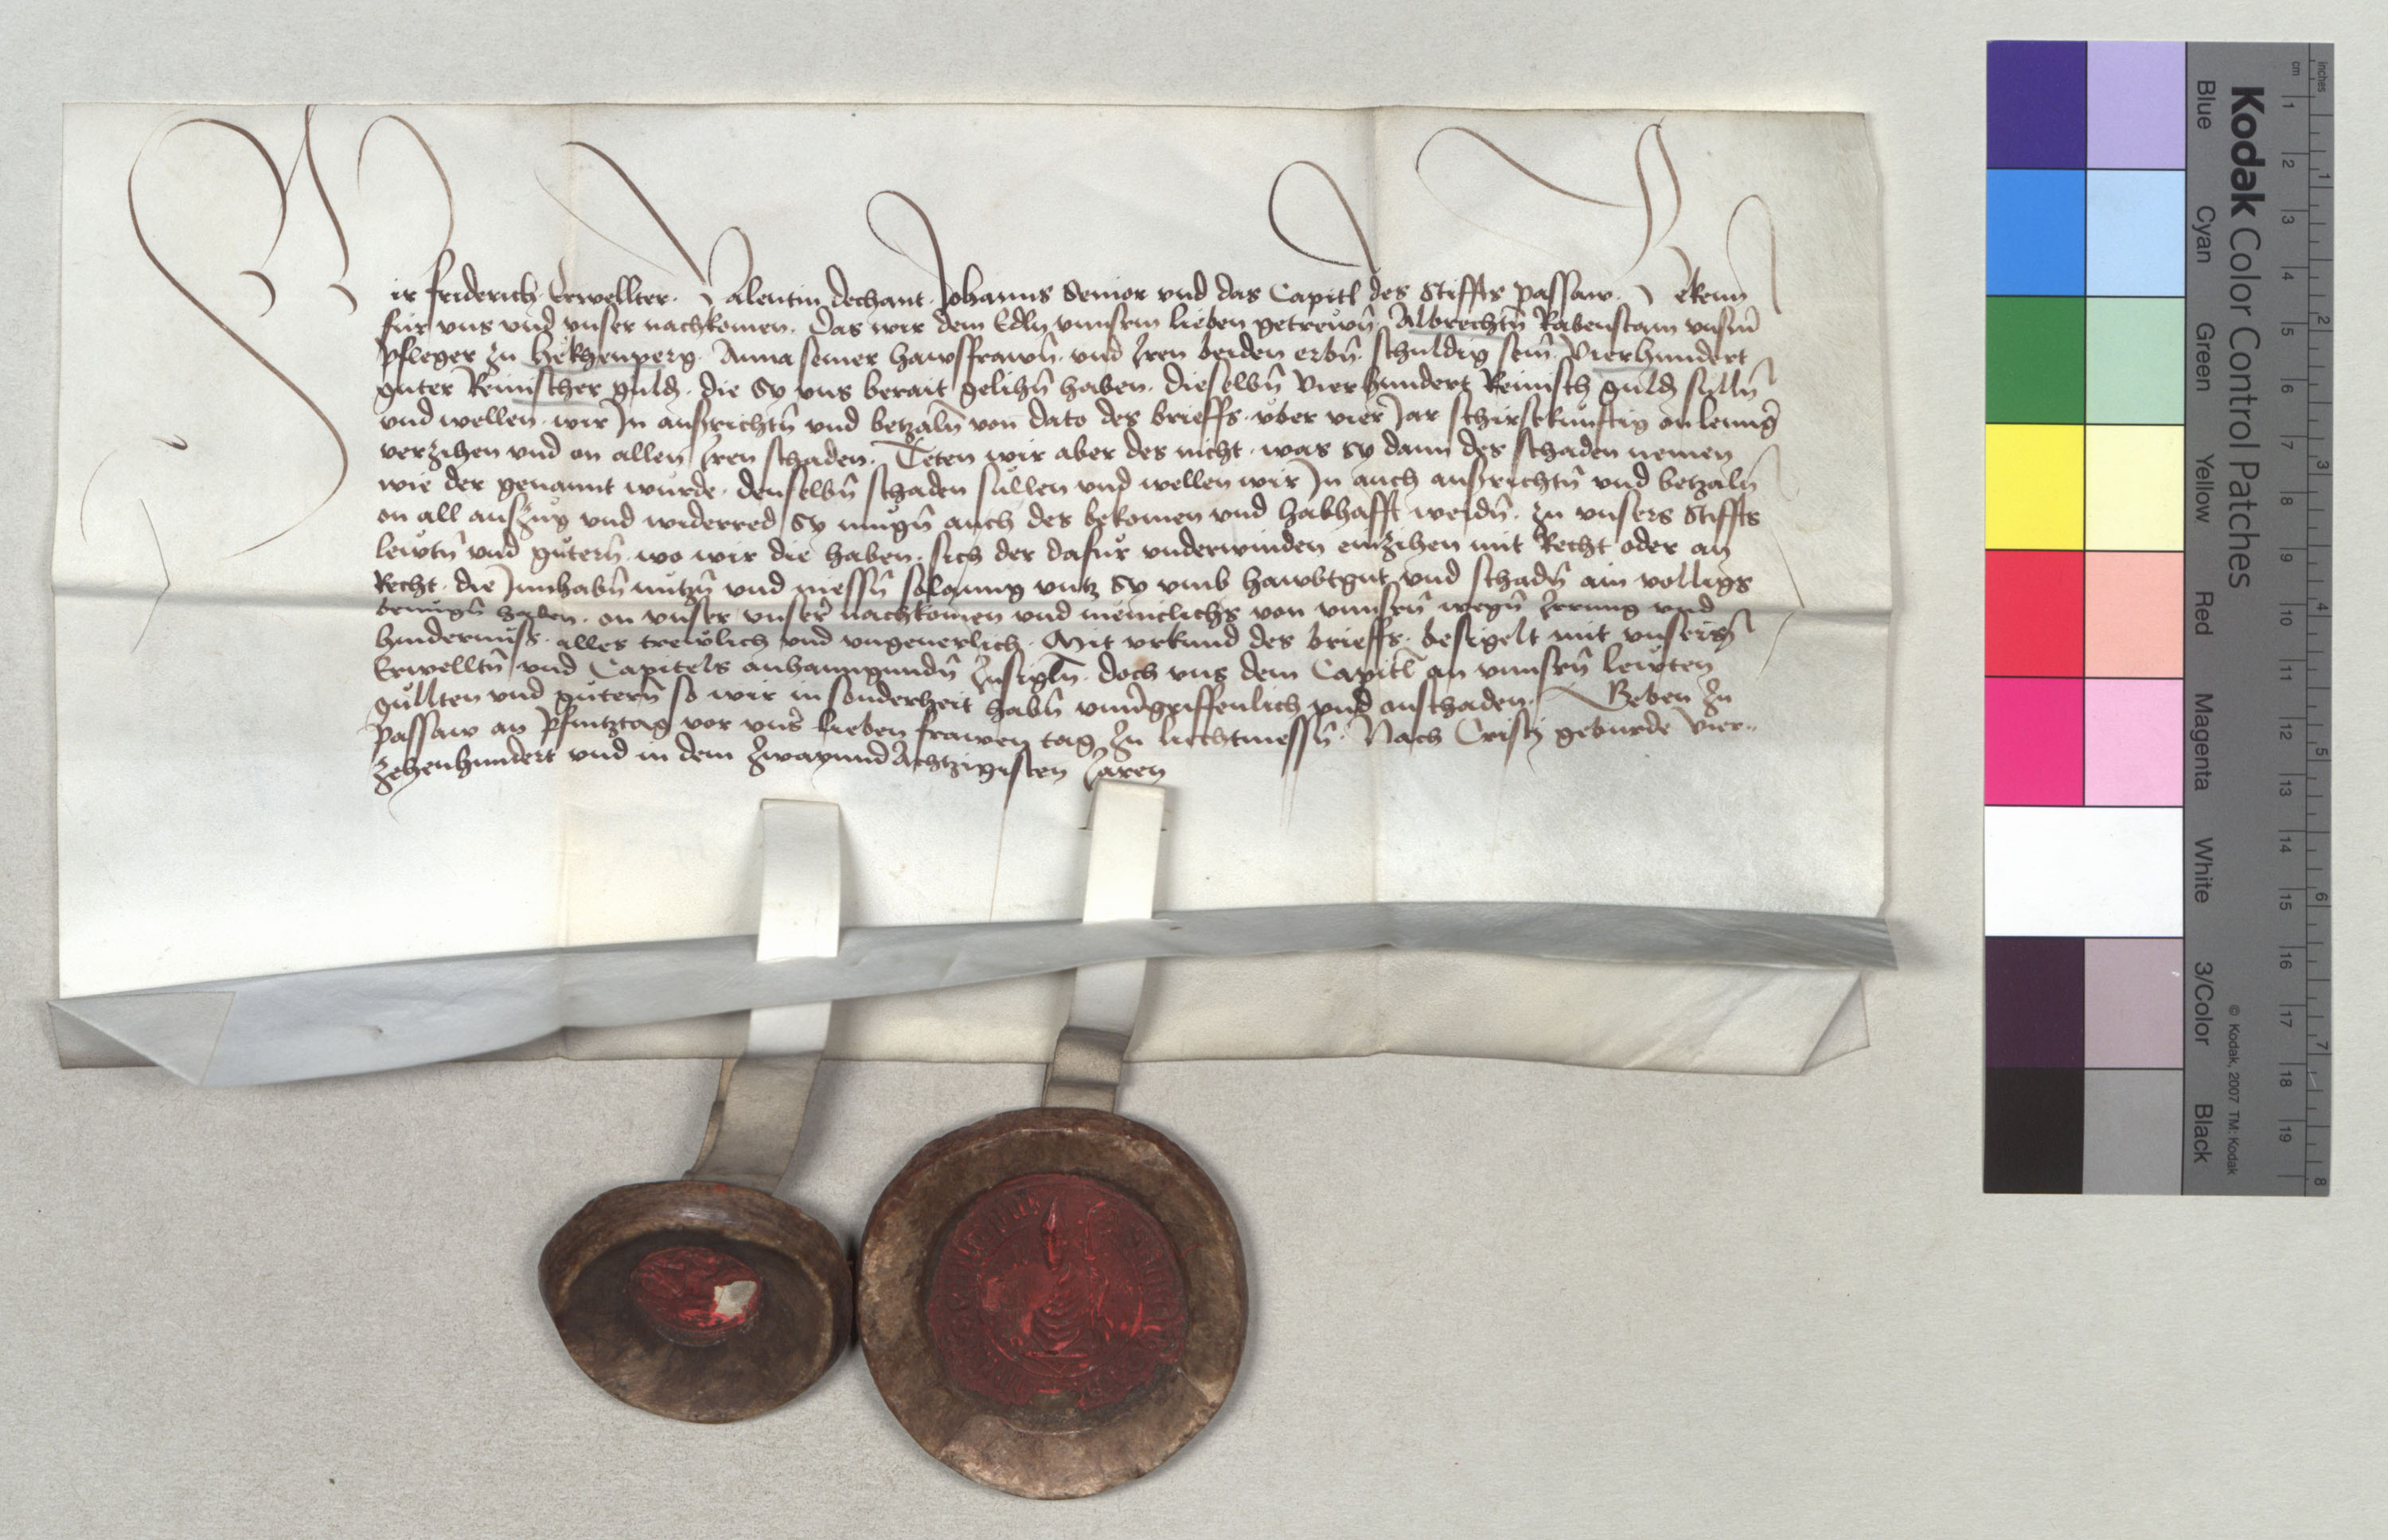 Wir Friderich Erwellter. Valentin dechant. Johanns Senior vnd das Capitl des Stiffts Passaw. Bekenn
für vns vnd vnser nachkomen. Das wir dem Edln vnnserm lieben getrewn̄ Albrechtn̄ Rabenstain vnserm
Pfleger zu Hekhenperg. Anna seiner hawsfrawn̄. vnd Iren beiden erbn̄. schuldig sein. Vierhundert
guter Reinischer guld. die Sy vns berait gelihn̄ haben. dieselbn̄ Vierhundert Reinisch guld sulln̄
vnd wellen. wir In ausrichtn̄ vnd betzaln̄ von dato des brieffs. vber vier Jar schirstkunftig on lennḡ
verzihen vnd on allen Iren schaden. Teten wir aber des nicht. was sy dann des schaden nemen
wie der genannt wurde. denselbn̄ schaden sullen vnd wellen wir In auch ausrichtn̄ vnd betzaln̄
on all auszug vnd widerred Sy mugn̄ auch des bekomen vnd habhafft werdn̄. zu vnsers Stiffts
lewtn̄ vnd gütern̄. wo wir die haben. sich der dafur vnderwinden einzihen mit Recht oder an
Recht. die Innhabn̄ nutzn̄ vnd niessn̄ solanng vntz Sy vmb hawbtgut vnd schadn̄ ain volligs
benugn̄ haben. on vnser vnser̄ nachkomen vnd meniclichs von vnnsern̄ wegn̄ Irrung vnd
hindernuss. alles trewlich vnd vngeuerlich. Mit vrkund des brieffs. besigelt mit vnserm
Erwelltn̄ vnd Capitels anhanngundn̄ Insigln̄. doch vns dem Capitl an vnnsrn̄ lewten
güllten vnd gütern̄ so wir in sonderheit habn̄ vnuergriffenlich vnd onschaden. Geben Zu
Passaw an Pfintztag vor vns̄ lieben frawen tag Zu liechtmessn̄. Nach Cristj geburde Vier-
zehenhundert vnd in dem Zwayundachtzigisten Jaren
Kodak Color Control Patches
© Kodak, 2007 TM: Kodak
Blue Cyan Green Yellow Red Magenta White 3/Color Black
cm 1 2 3 4 5 6 7 8 9 10 11 12 13 14 15 16 17 18 19
inches 1 2 3 4 5 6 7 8